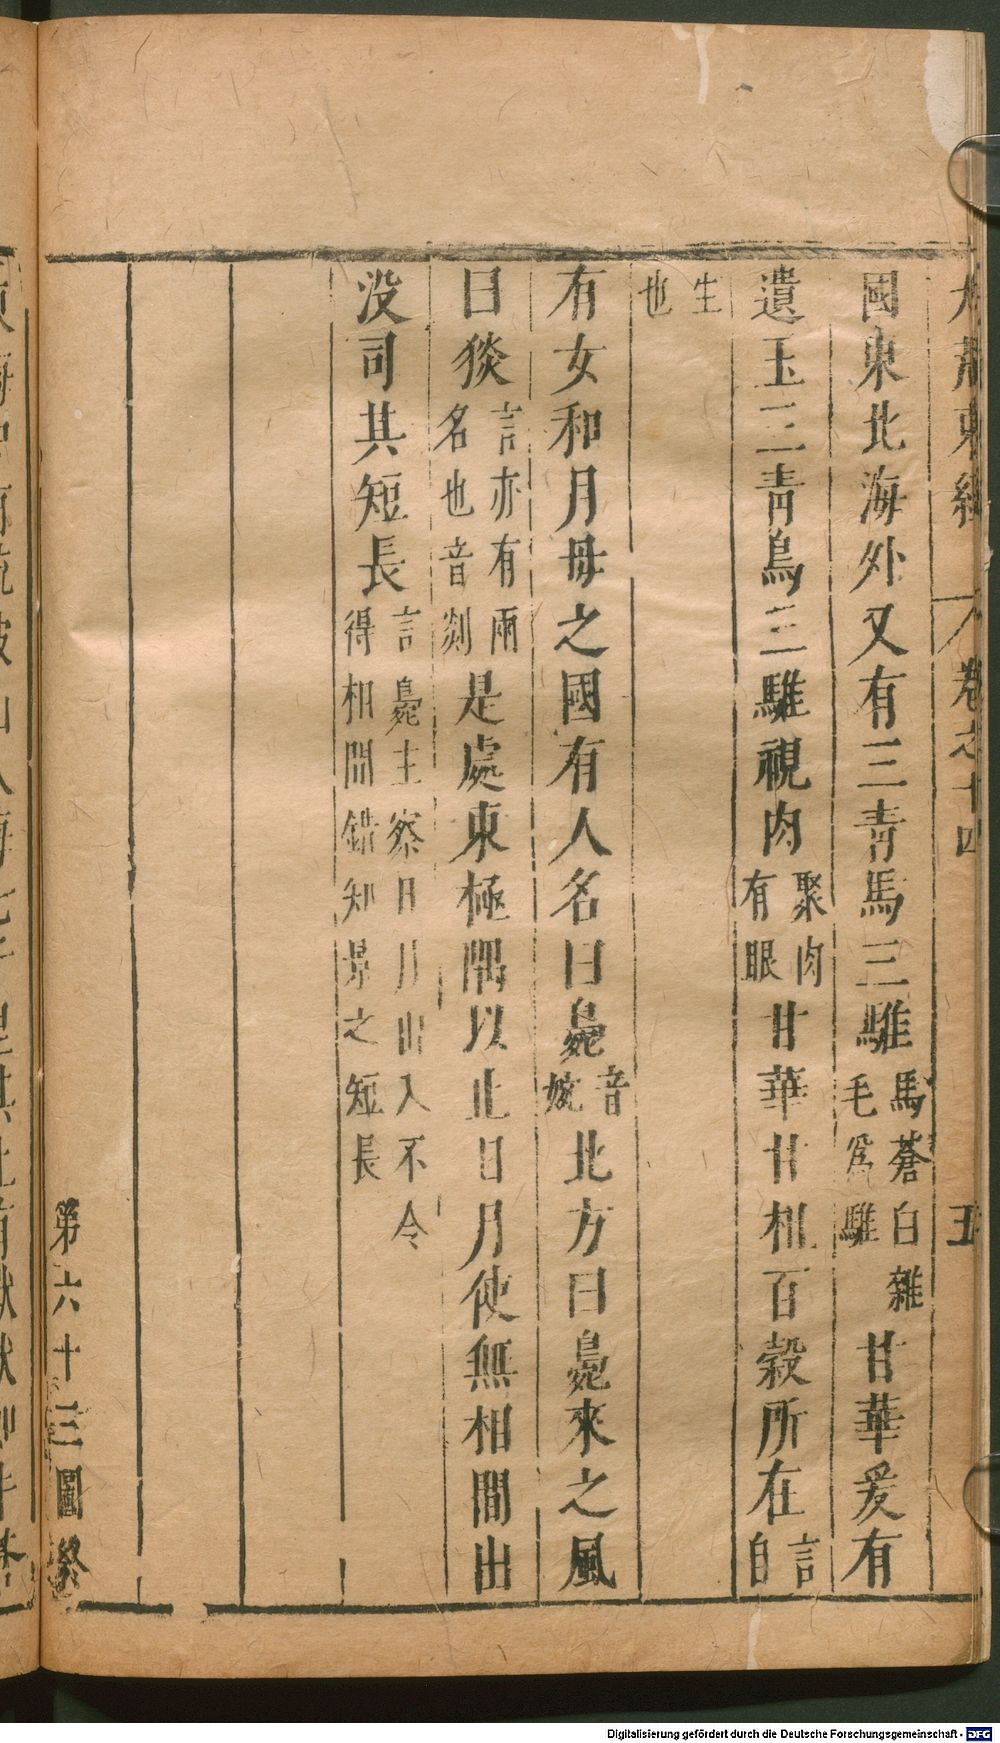 大荒東經 卷之十四 五
國東北海外又有三青馬三騅馬蒼白雜毛爲騅甘華爰有
遺玉三青鳥三騅視肉聚肉有眼甘華甘柤百穀所在言自
生也
有女和月母之國有人名曰鳧音㛃北方曰鳧來之風
曰狻言亦有兩名也音剡是處東極隅以止日月使無相間出
没司其短長言鳧主察日月出入不令得相間錯知景之短長
第六十三圖終
Digitalisierung gefördert durch die Deutsche Forschungsgemeinschaft - DFG